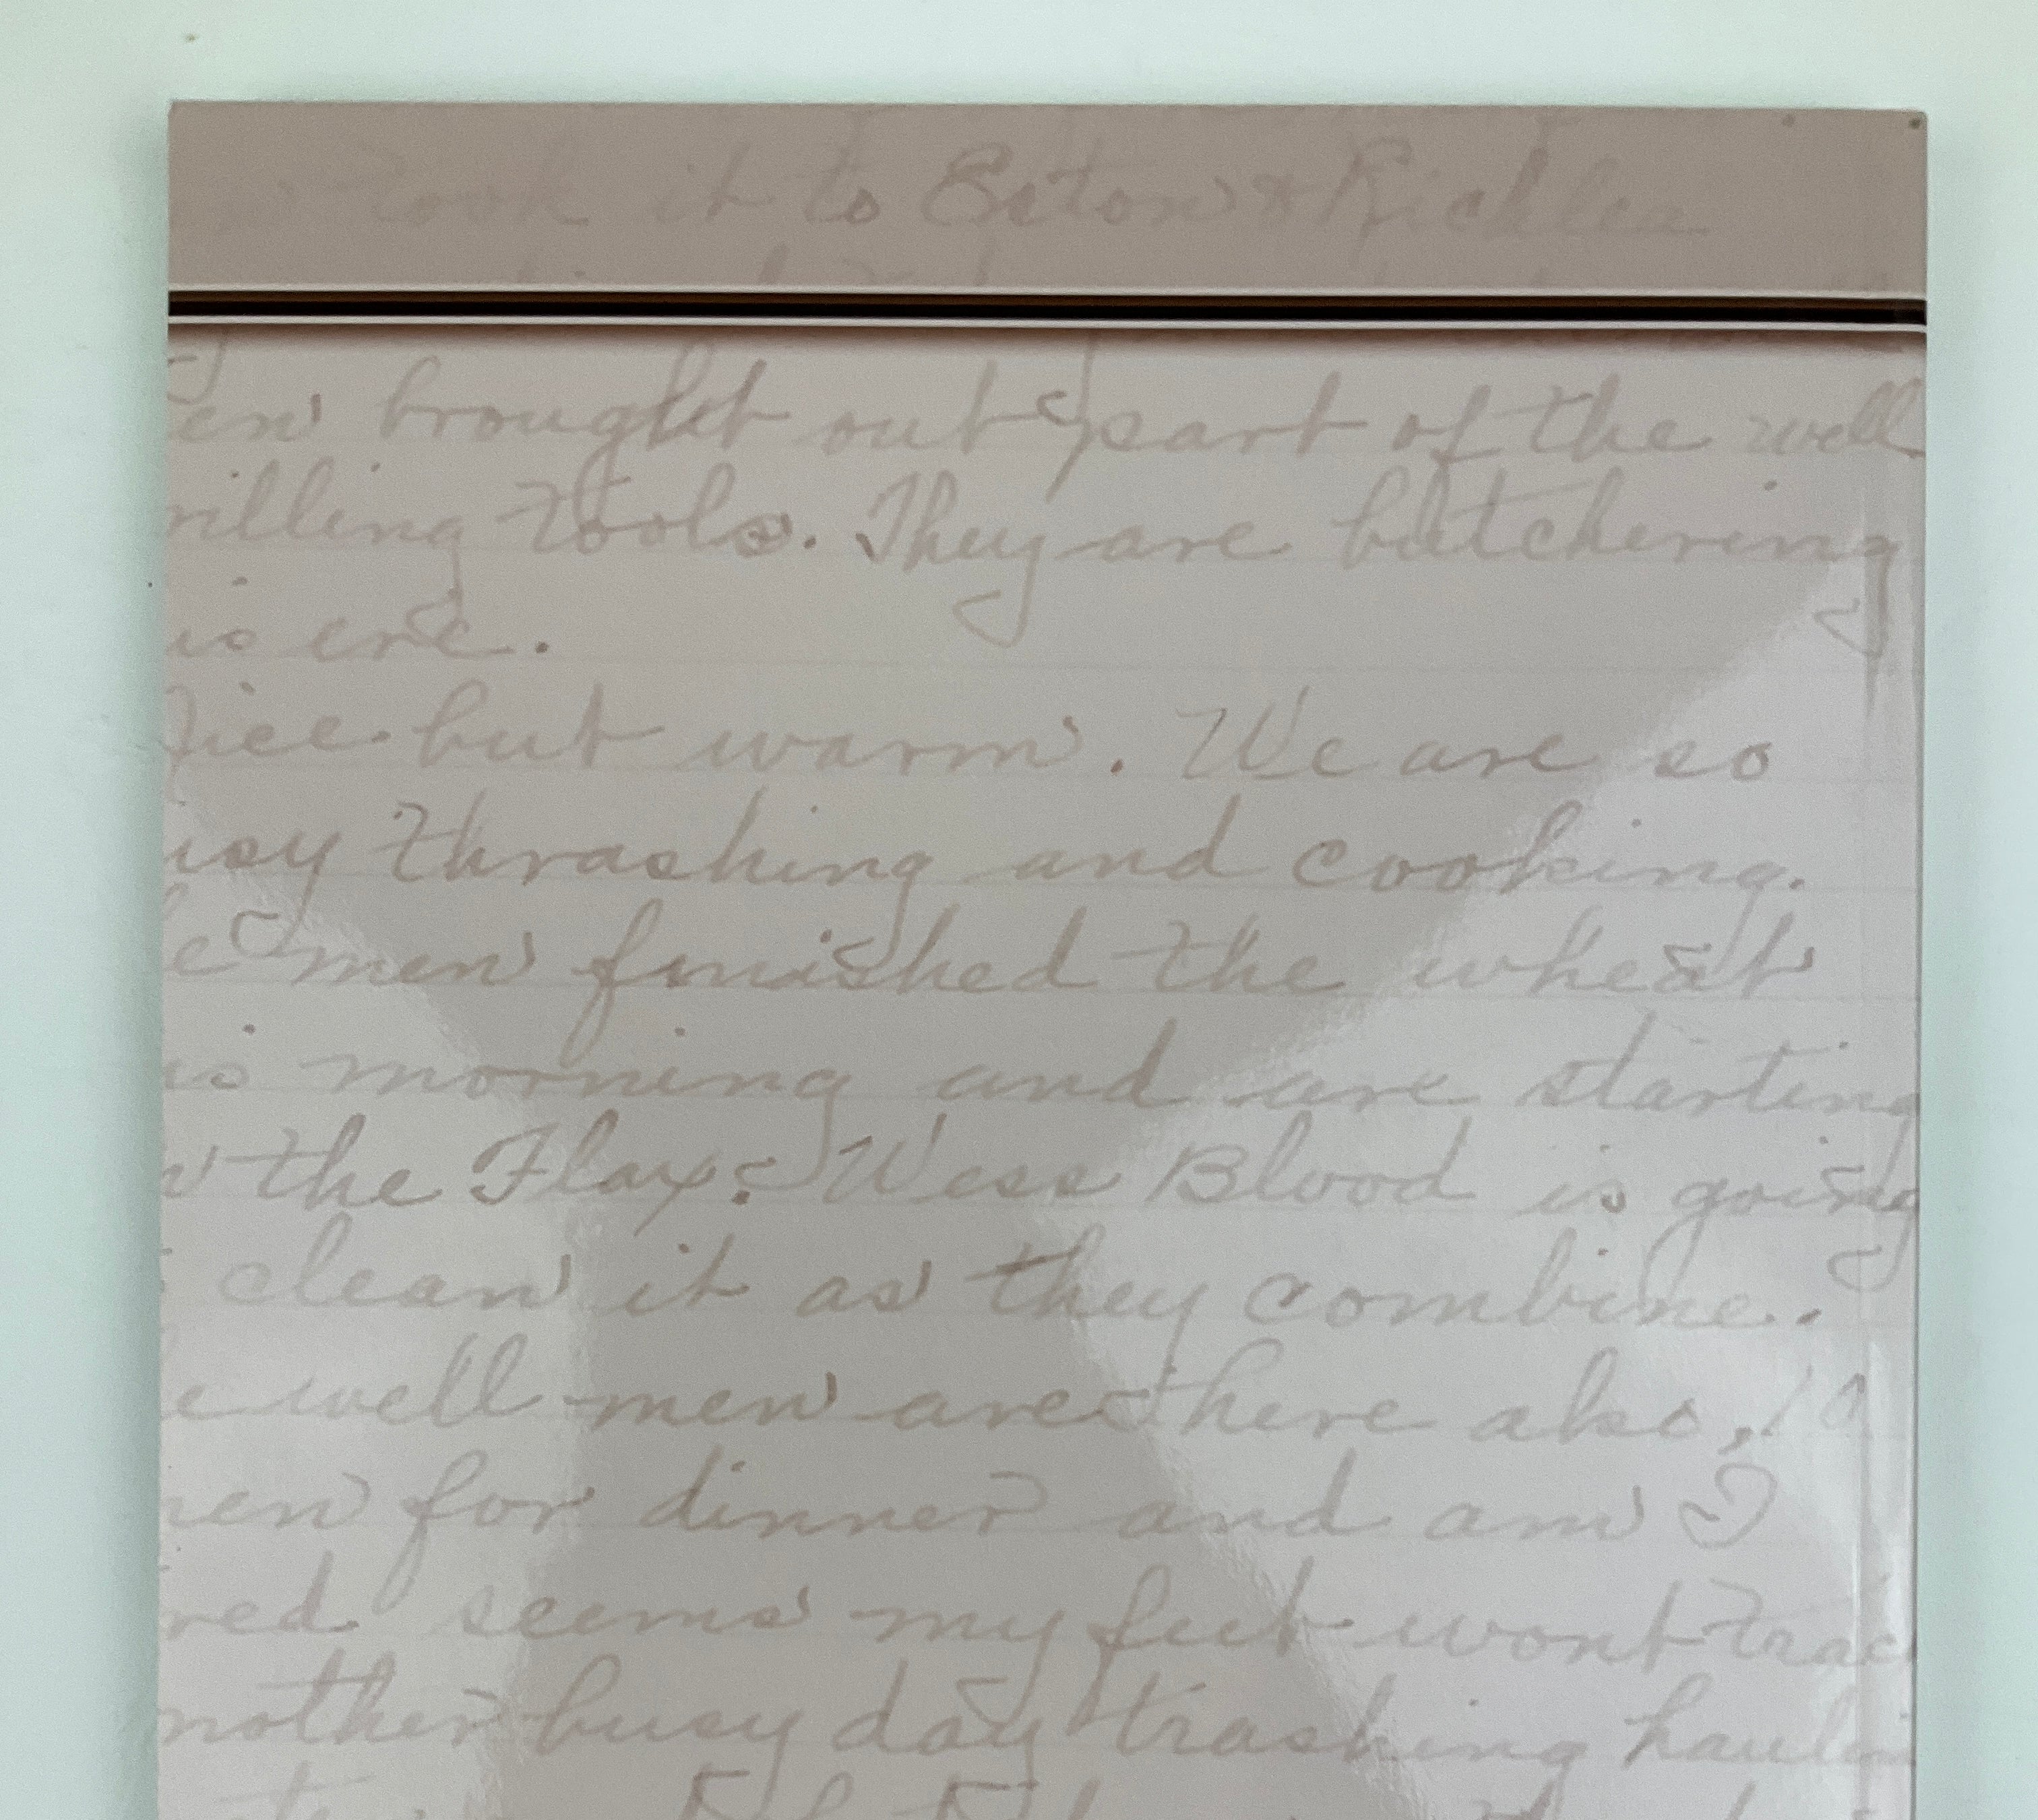 took it to Eaton & Richlea
en brought out part of the well
rilling tools. They are butchering
is eve.
ice but warm. We are so
usy thrashing and cooking.
e men finished the wheat
is morning and are starting
n the Flax. Wess Blood is going
clean it as they combine.
e well men are here also, 10
men for dinner and am I
red seems my feet wont trac
nother busy day trashing haulin